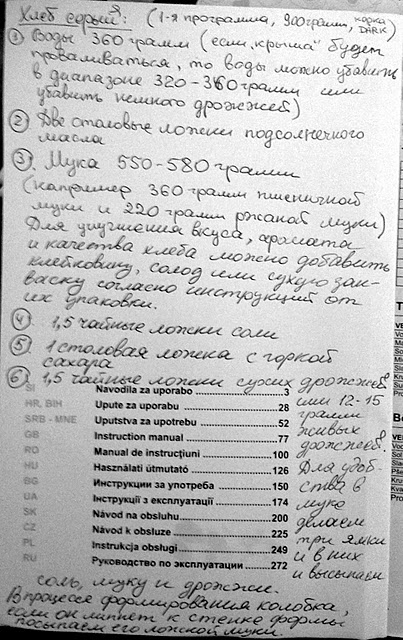 Хлеб серый: (1-я программа, 900грамм, корка DARK)
① Воды 360 грамм (если „крыша" будет
проваливаться, то воды можно убавить
в диапазоне 320-360 грамм или
убавить немного дрожжей)
② Две столовые ложки подсолнечного
масла
③ Мука 550-580 грамм
(например 360 грамм пшеничной
муки и 220 грамм ржаной муки)
Для улучшения вкуса, аромата
и качества хлеба можно добавить
клейковину, солод или сухую зак-
васку согласно инструкций от
их упаковки.
④ 1,5 чайные ложки соли
⑤ 1 столовая ложка с горкой
сахара
⑥ 1,5 чайные ложки сухих дрожжей
или 12-15
грамм
живых
дрожжей.
Для удоб-
ства в
муке
делаем
три ямки
и в них
и высыпаем
SI Navodila za uporabo 3
HR, BIH Upute za uporabu 28
SRB - MNE Uputstva za upotrebu 52
GB Instruction manual 77
RO Manual de instrucţiuni 100
HU Használati útmutató 126
BG Инструкции за употреба 150
UA Інструкції з експлуатації 174
SK Návod na obsluhu 200
CZ Návod k obsluze 225
PL Instrukcja obsługi 249
RU Руководство по эксплуатации 272
соль, муку и дрожжи.
В процессе формирования колобка,
если он липнет к стенке формы
посыпаем его ложкой муки.